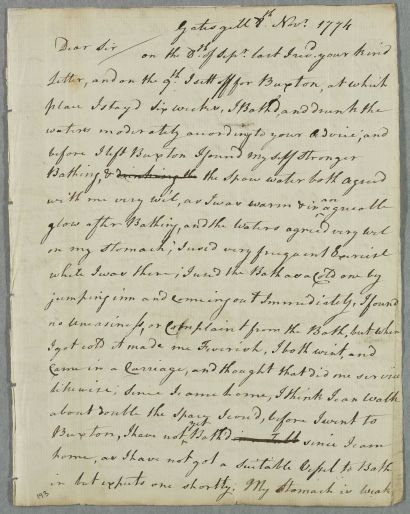 Gatesgill 8th. Novr. 1774
Dear Sir
on the 8th. of Sepr. last I recd. your kind
Letter, and on the 9th. I sett off for Buxton, at which
place I stayd six weeks, I Bathd, and drunk the
waters moderately according to your advice, and
before I left Buxton I found my self stronger
Bathing, & drinking the the Spaw water both agreed
with me very wel, as I was warm & in an agreeable
glow after Bathing, and the Waters agreed very wel
on my stomach, I used very frequent Exercise
while I was there; I used the Bath as a Cold one by
jumping inn and Coming out Immidiately, I found
no uneasiness, or Complaint from the Bath, but when
I got cold it made me Feverish, I both went and
Came in a Carriage, and thought that did me service
likewise; since I came home, I think I can walk
about double the space I coud, before I went to
Buxton, I have not yet Bathd since I cam
home, as I have not got a suitable Vessel to Bath
in but expects one shortly. My Stomach is weak
193